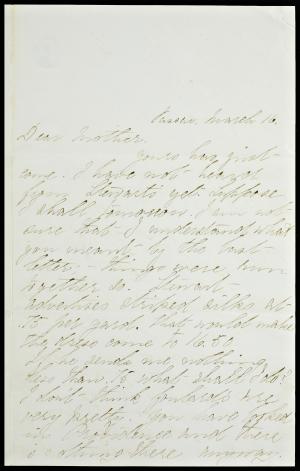 Vassar, March 16.
Dear Mother.
Yours has just
come. I have not heard
from Stewarts yet. Suppose
I shall tomorrow. I am not
sure that I understand what
you meant by the last
letter - things were run
together so. Stewart
advertises striped silks at
.75 per yard. that would make
the dress come to 16.50
If he sends me nothing
less than .75 what shall I do?
I don't think foulards are
very pretty. You have looked
in Providence and there
is nothing there anyway.